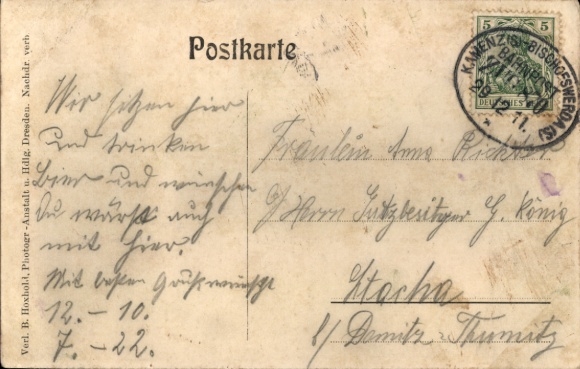 Postkarte
5 5
DEUTSCHES
KAMENZ(S)-BISCHOFSWERDA(S)
BAHNPOST
29.12.11.
Wir sitzen hier
und trinken
Bier und wünschen
Du wärst auch
mit hier.
Mit besten Grüßen wünscht
12. - 10.
7. - 22.
Fräulein Anna Richter
b/ Herrn Gutsbesitzer G. König
Stacha
b/ Demitz-Thumitz
Verl. B. Hoxhold, Photogr.-Anstalt u. Hdlg. Dresden. Nachdr. verb.